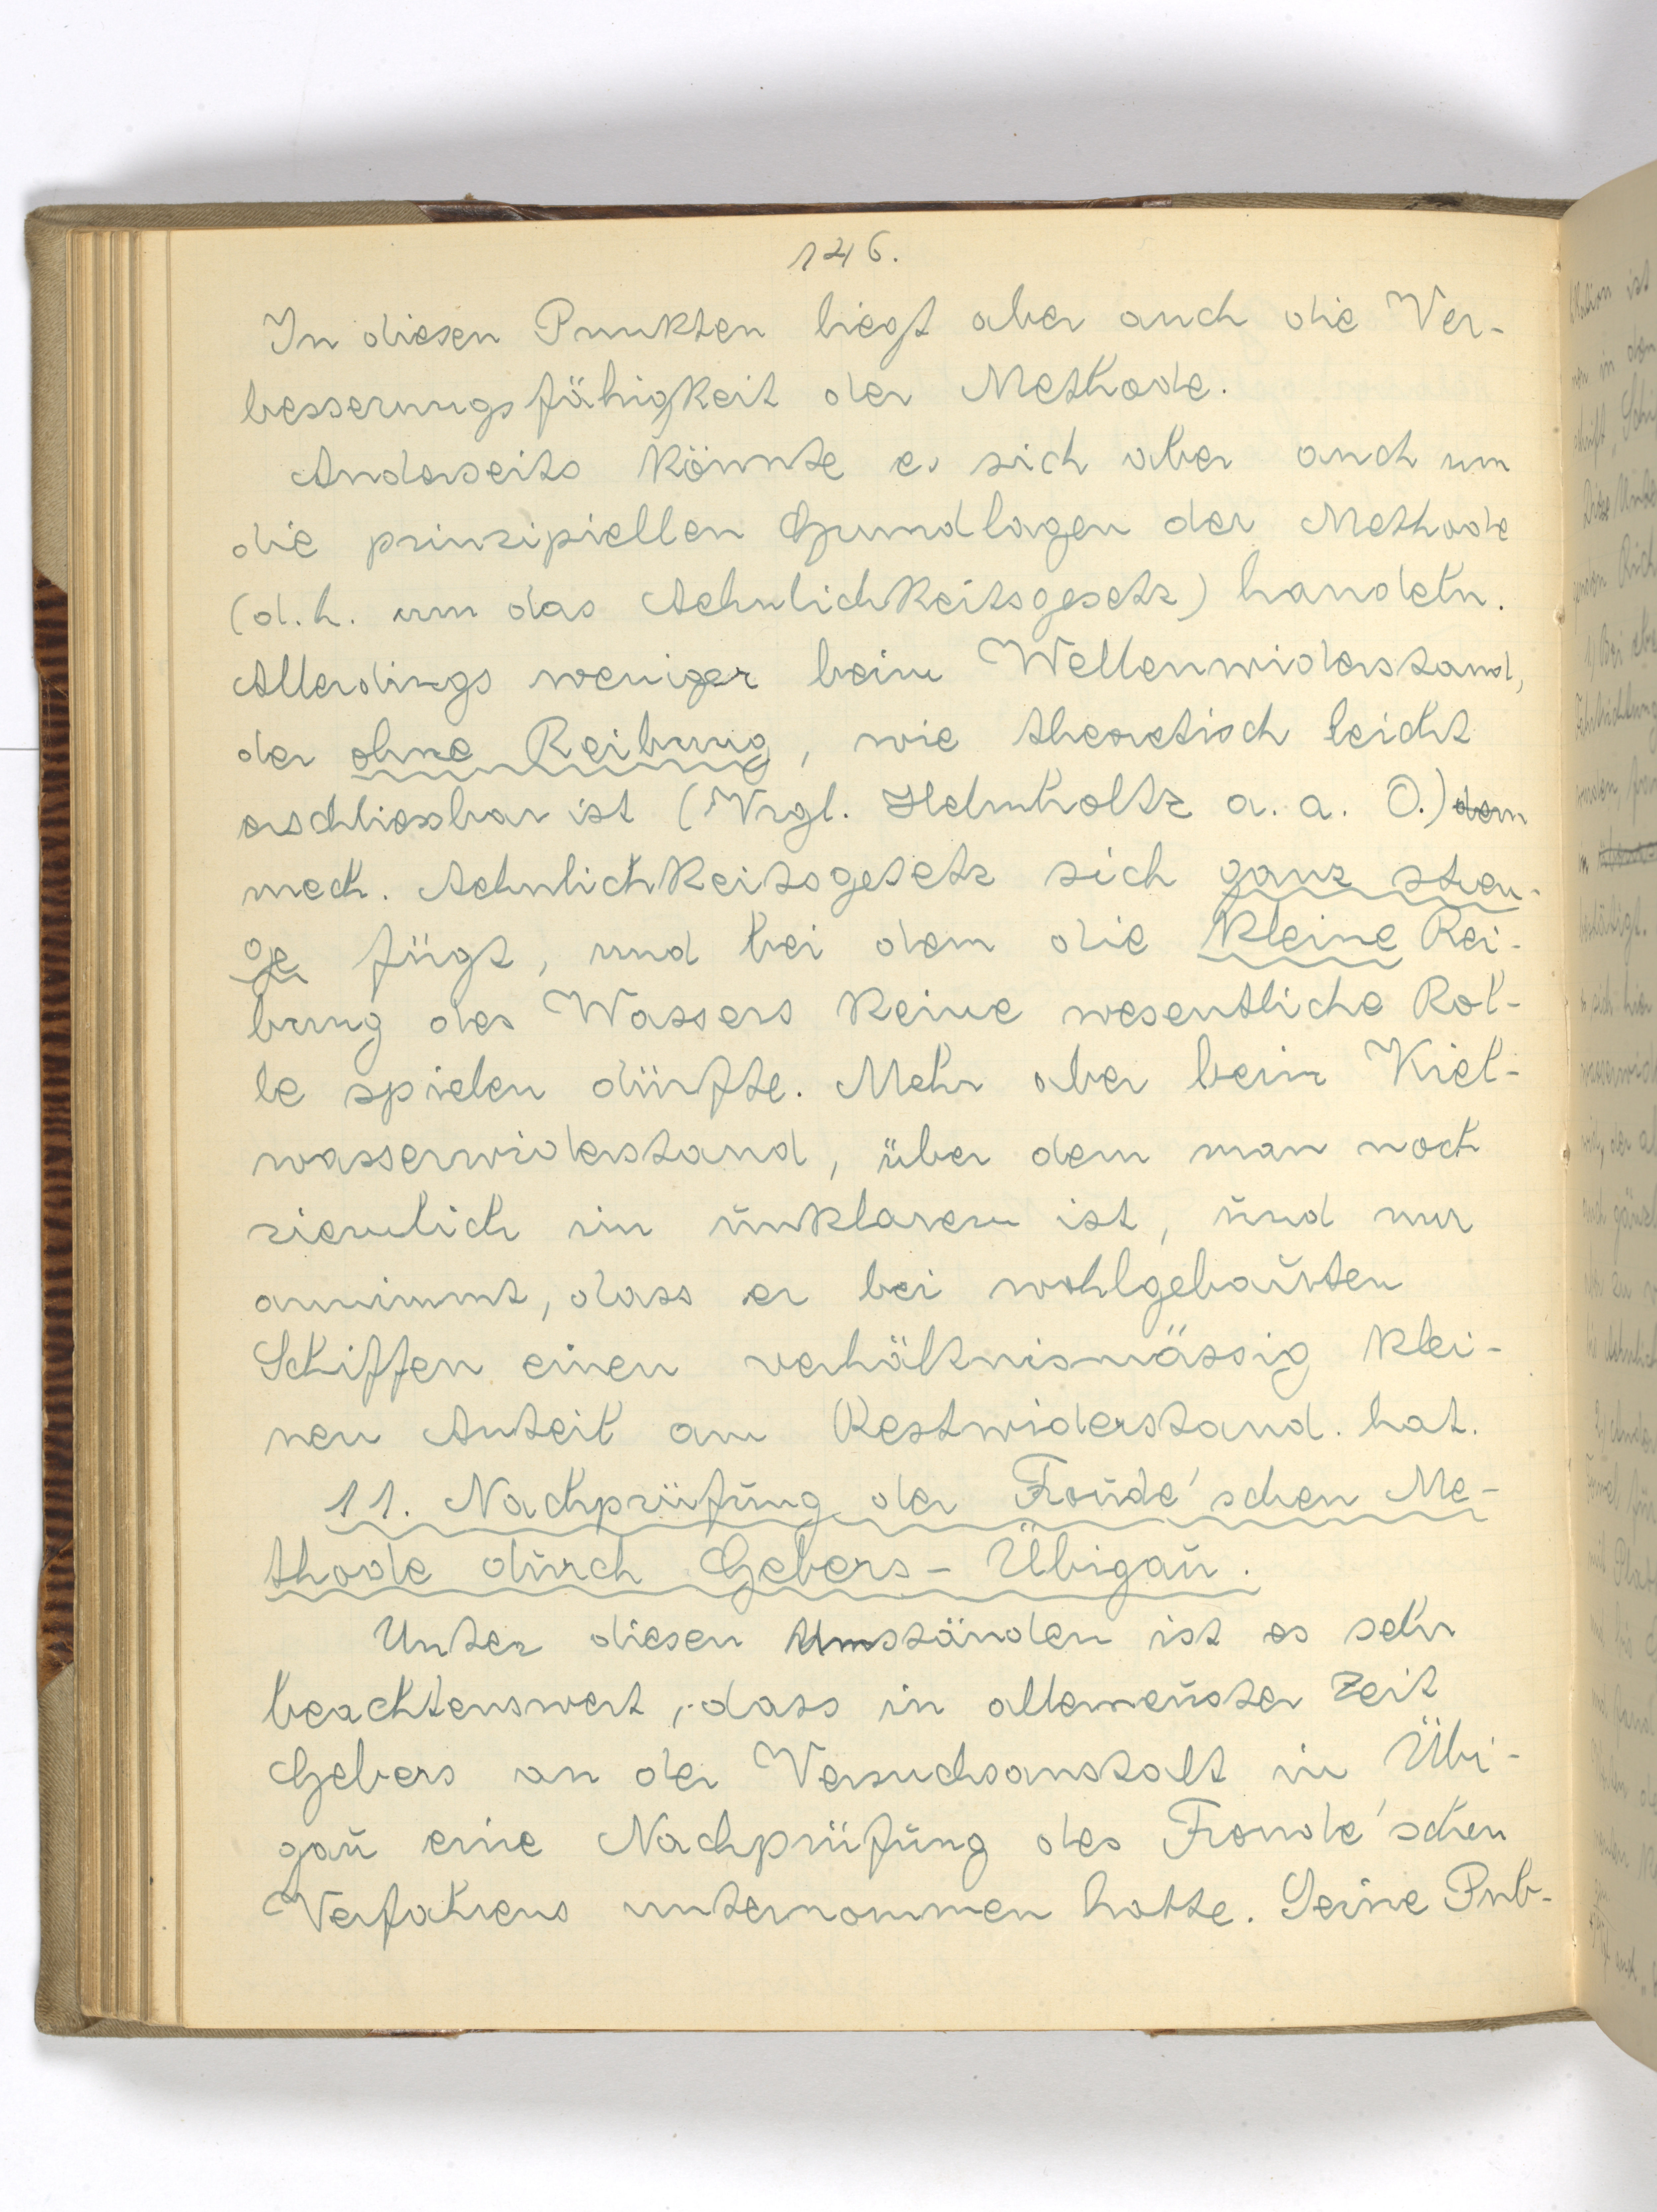 146.
In diesen Punkten liegt aber auch die Ver-
besserungsfähigkeit der Methode.
Anderseits könnte es sich aber auch um
die prinzipiellen Grundlagen der Methode
(d.h. um das Aehnlichkeitsgesetz) handeln.
Allerdings weniger beim Wellenwiderstand,
der ohne Reibung, wie theoretisch leicht
erschliessbar ist (Vrgl. Helmholtz a. a. O.) dem
mech. Aehnlichkeitsgesetz sich ganz stren-
ge fügt, und bei dem die kleine Rei-
bung des Wassers keine wesentliche Rol-
le spielen dürfte. Mehr aber beim Kiel-
wasserwiderstand, über dem man noch
ziemlich im unklaren ist, und nur
annimmt, dass er bei wohlgebauten
Schiffen einen verhältnismässig klei-
nen Anteil am Restwiderstand. hat.
11. Nachprüfung der Froude'schen Me-
thode durch Gebers-Übigau.
Unter diesen Umständen ist es sehr
beachtenswert, dass in allerneuster Zeit
Gebers an der Versuchsanstalt in Übi-
gau eine Nachprüfung des Froude'schen
Verfahrens unternommen hatte. Seine Pub-